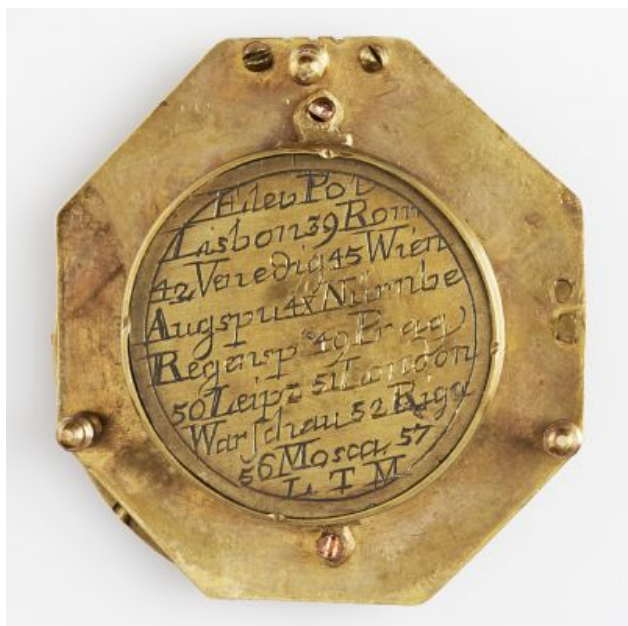 Elev Pol
Lisbon 39 Rom
42 Venedig 45 Wien
Augspu 48 Nürnbe
Regensp 49 Prag
50 Leipz 51 London
Warschau 52 Riga
56 Mosca 57
L T M